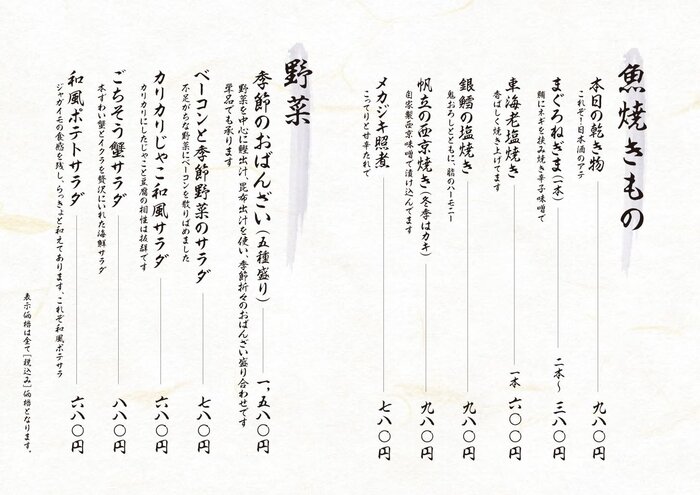 魚焼きもの
本日の乾き物 九八〇円
これぞ！日本酒のアテ
まぐろねぎま（一本） 二本〜 三八〇円
鮪にネギを挟み焼き辛子味噌で
車海老塩焼き 一本 六〇〇円
香ばしく焼き上げてます
銀鱈の塩焼き 九八〇円
鬼おろしとともに、脂のハーモニー
帆立の西京焼き（冬季はカキ） 九八〇円
自家製西京味噌で漬け込んでます
メカジキ照煮 七八〇円
こってりと甘辛たれで
野菜
季節のおばんざい（五種盛り） 一，五八〇円
野菜を中心に鰹出汁、昆布出汁を使い、季節折々のおばんざい盛り合わせです
単品でも承ります
ベーコンと季節野菜のサラダ 七八〇円
不足がちな野菜にベーコンを散りばめました
カリカリじゃこ和風サラダ 六八〇円
カリカリにしたじゃこと豆腐の相性は抜群です
ごちそう蟹サラダ 八八〇円
本ずわい蟹とイクラを贅沢にいれた海鮮サラダ
和風ポテトサラダ 六八〇円
ジャガイモの食感を残し、らっきょと和えてあります、これぞ和風ポテサラ
表示価格は全て［税込み］価格となります。